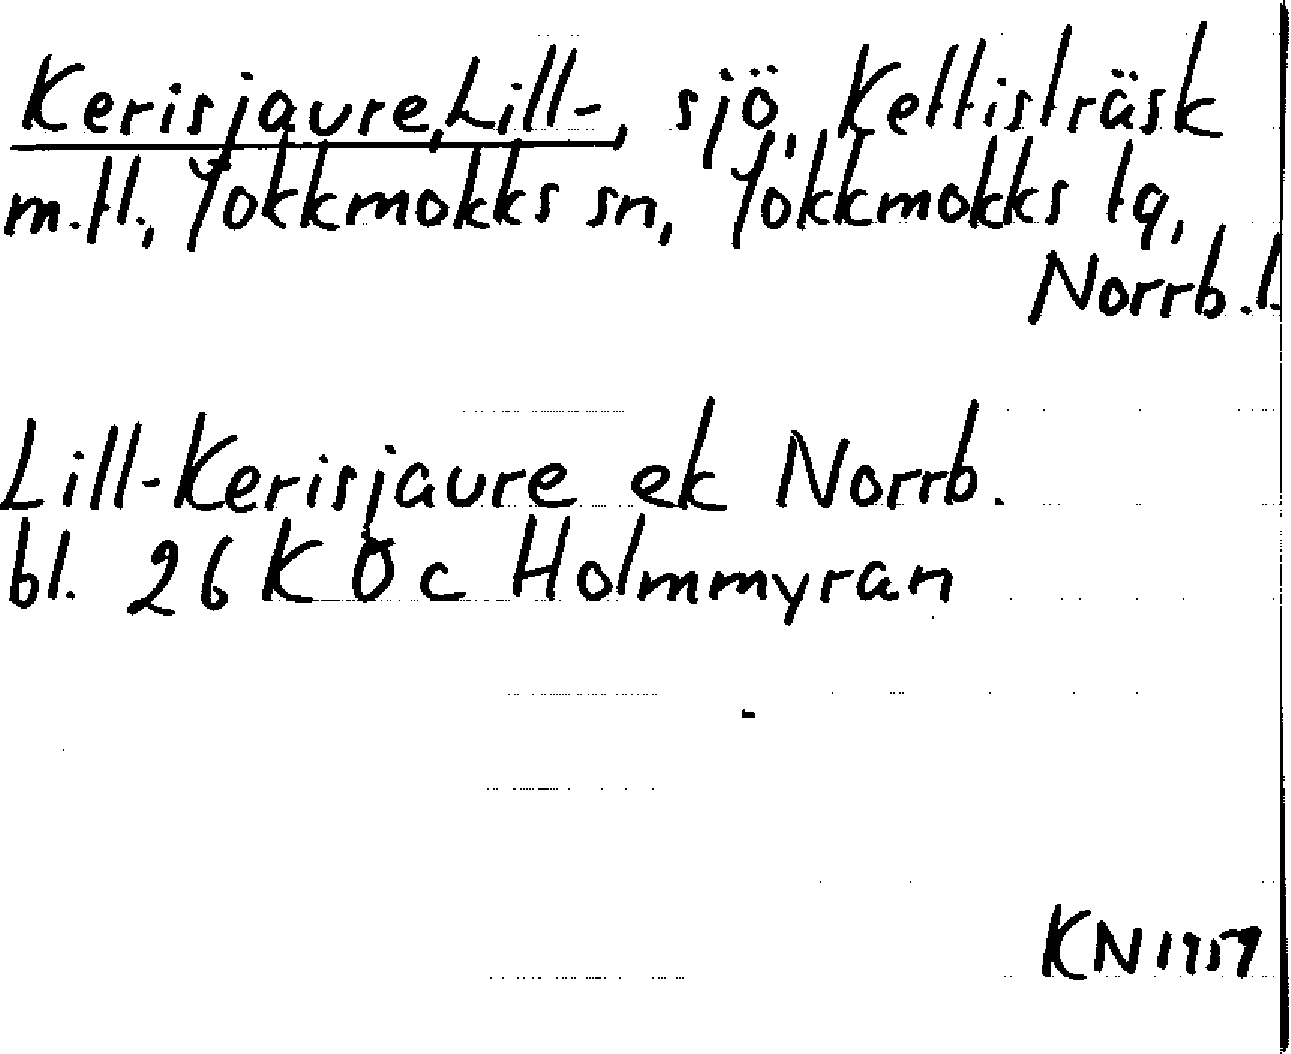 Kerisjaure, Lill-, sjö, Kettisträsk
m.fl., Jokkmokks sn, Jokkmokks lq,
Norrb.l.
Lill-Kerisjaure ek Norrb.
bl. 26 K 0 c Holmmyran
KN 1957